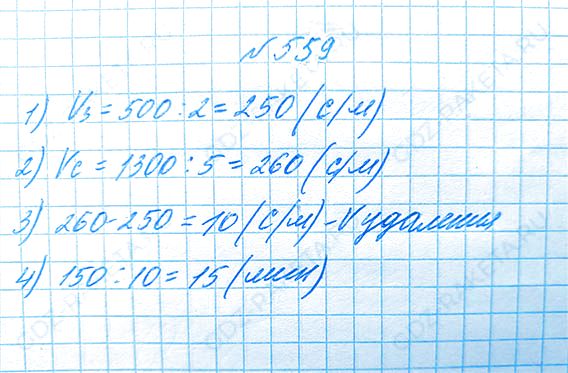 №559
1) Vз = 500 : 2 = 250 (с/м)
2) Vс = 1300 : 5 = 260 (с/м)
3) 260 - 250 = 10 (с/м) - V удаления
4) 150 : 10 = 15 (мин)